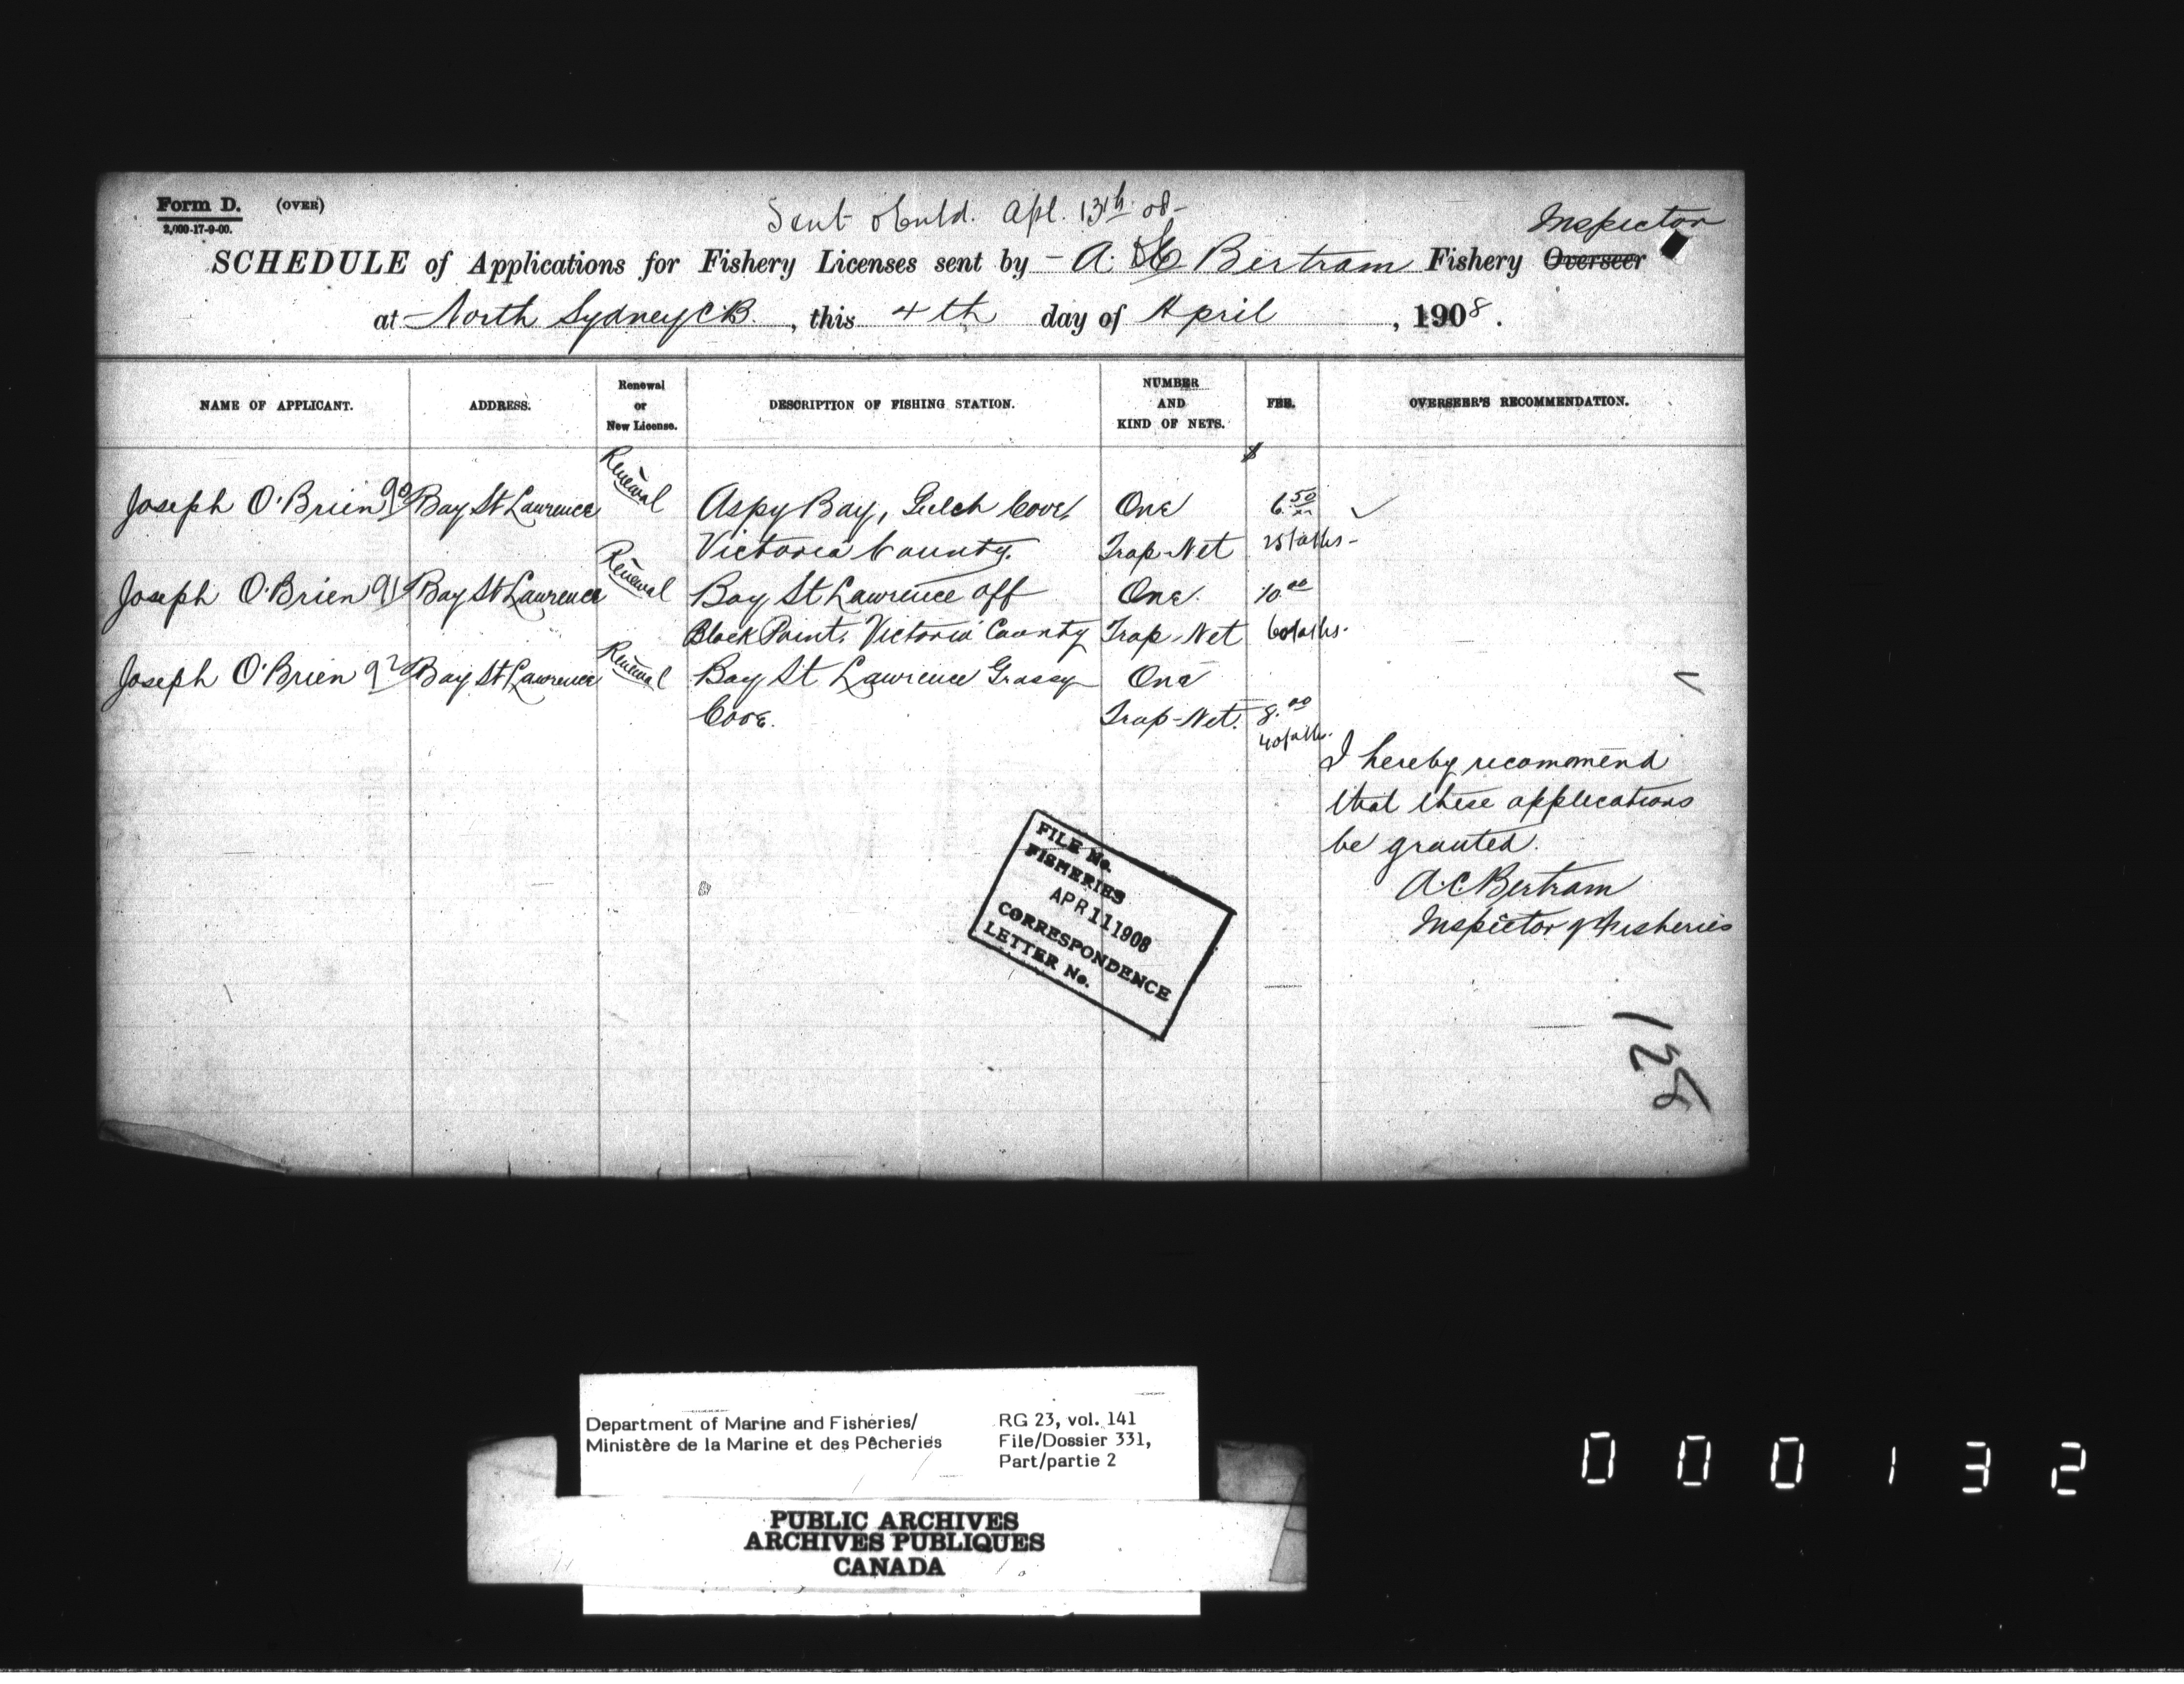 Form D. (OVER)
2,000-17-9-00.
Sent Apl. 13th 08-
Inspector
SCHEDULE of Applications for Fishery Licenses sent by - A. C Bertram Fishery Overseer
at North Sydney C.B. , this 4th day of April , 1908.
NAME OF APPLICANT.
ADDRESS.
Renewal
or
New License.
DESCRIPTION OF FISHING STATION.
NUMBER
AND
KIND OF NETS.
FEE.
OVERSEER'S RECOMMENDATION.
$
Joseph O'Brien 90 Bay St Lawrence Renewal Aspy Bay, Gulch Cove, One 6.50
Victoria County. Trap-Net 25 faths-
Joseph O'Brien 91 Bay St Lawrence Renewal Bay St Lawrence off One. 10.00
Black Point, Victoria County Trap-Net 60 faths-
Joseph O'Brien 92 Bay St Lawrence Renewal Bay St Lawrence Grassy One
Cove. Trap-Net. 8.00
40 faths-
I hereby recommend
that these applications
be granted.
A.C. Bertram
Inspector of Fisheries
FILE No.
FISHERIES
APR 11 1908
CORRESPONDENCE
LETTER No.
Department of Marine and Fisheries/
Ministère de la Marine et des Pêcheries
RG 23, vol. 141
File/Dossier 331,
Part/partie 2
PUBLIC ARCHIVES
ARCHIVES PUBLIQUES
CANADA
000132